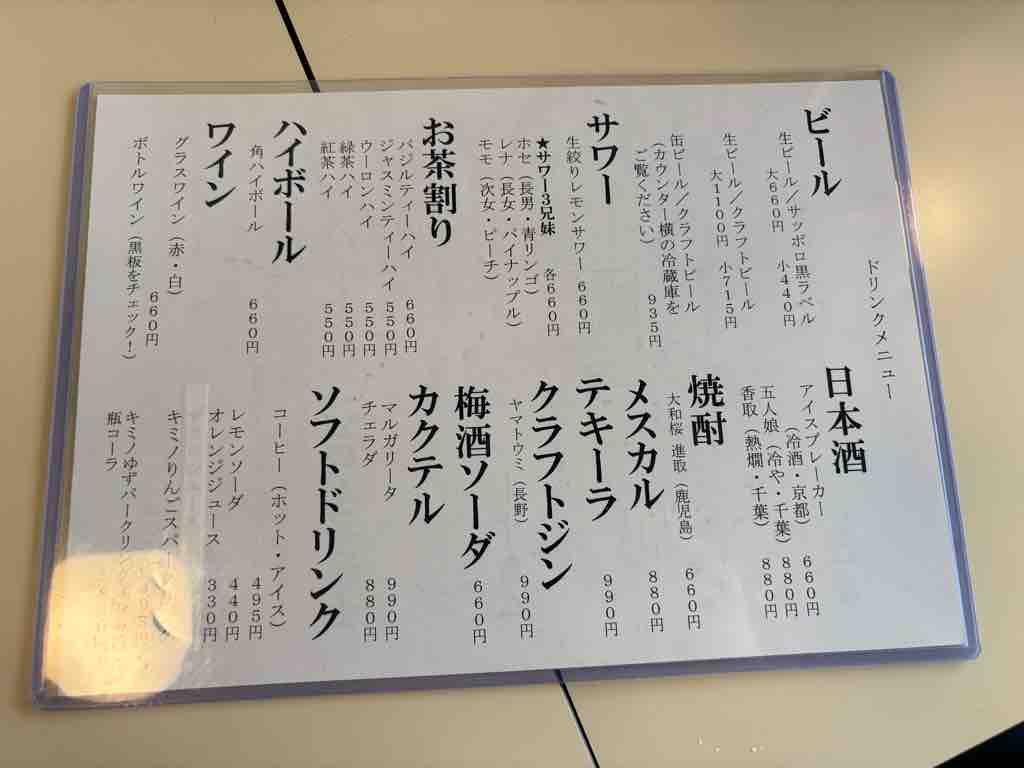 ドリンクメニュー
ビール
生ビール／サッポロ黒ラベル
大660円 小440円
生ビール／クラフトビール
大1100円 小715円
缶ビール／クラフトビール
(カウンター横の冷蔵庫を
ご覧ください) 935円
サワー
生絞りレモンサワー 660円
★サワー3兄妹 各660円
ホセ(長男・青リンゴ)
レナ(長女・パイナップル)
モモ(次女・ピーチ)
お茶割り
バジルティーハイ 660円
ジャスミンティーハイ 550円
ウーロンハイ 550円
緑茶ハイ 550円
紅茶ハイ 550円
ハイボール
角ハイボール 660円
ワイン
グラスワイン(赤・白) 660円
ボトルワイン(黒板をチェック！)
日本酒
アイスブレーカー 660円
(冷酒・京都)
五人娘(冷や・千葉) 880円
香取(熱燗・千葉) 880円
焼酎
大和桜 進取(鹿児島) 660円
メスカル 880円
テキーラ 990円
クラフトジン
ヤマトウミ(長野) 990円
梅酒ソーダ 660円
カクテル
マルガリータ 990円
チェラダ 880円
ソフトドリンク
コーヒー(ホット・アイス) 495円
レモンソーダ 440円
オレンジジュース 330円
キミノりんごスパー
キミノゆずパークリング
瓶コーラ